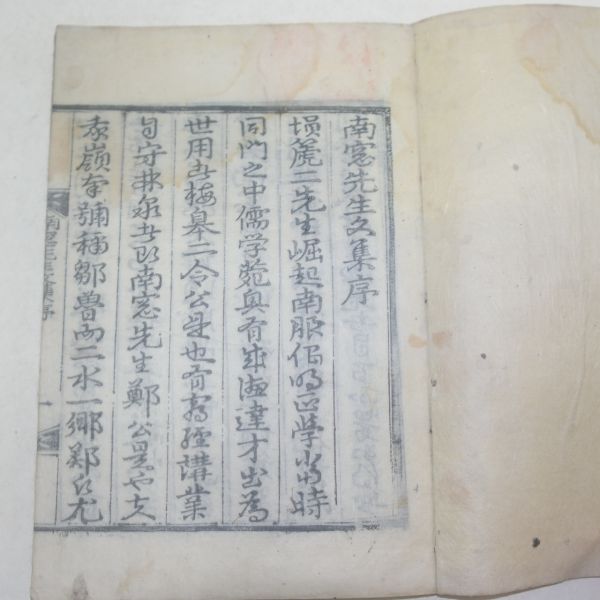 南窓先生文集序
損篪二先生崛起南服倡明正學當時
同門之中儒学菀奧有通達才出為
世用者梅皋二令公是也有窮經講業
自守林泉者即南窓先生鄭公是也夫
嶺本號稱鄒魯而二水一鄉鄭氏尤
南窓先生文集序
一